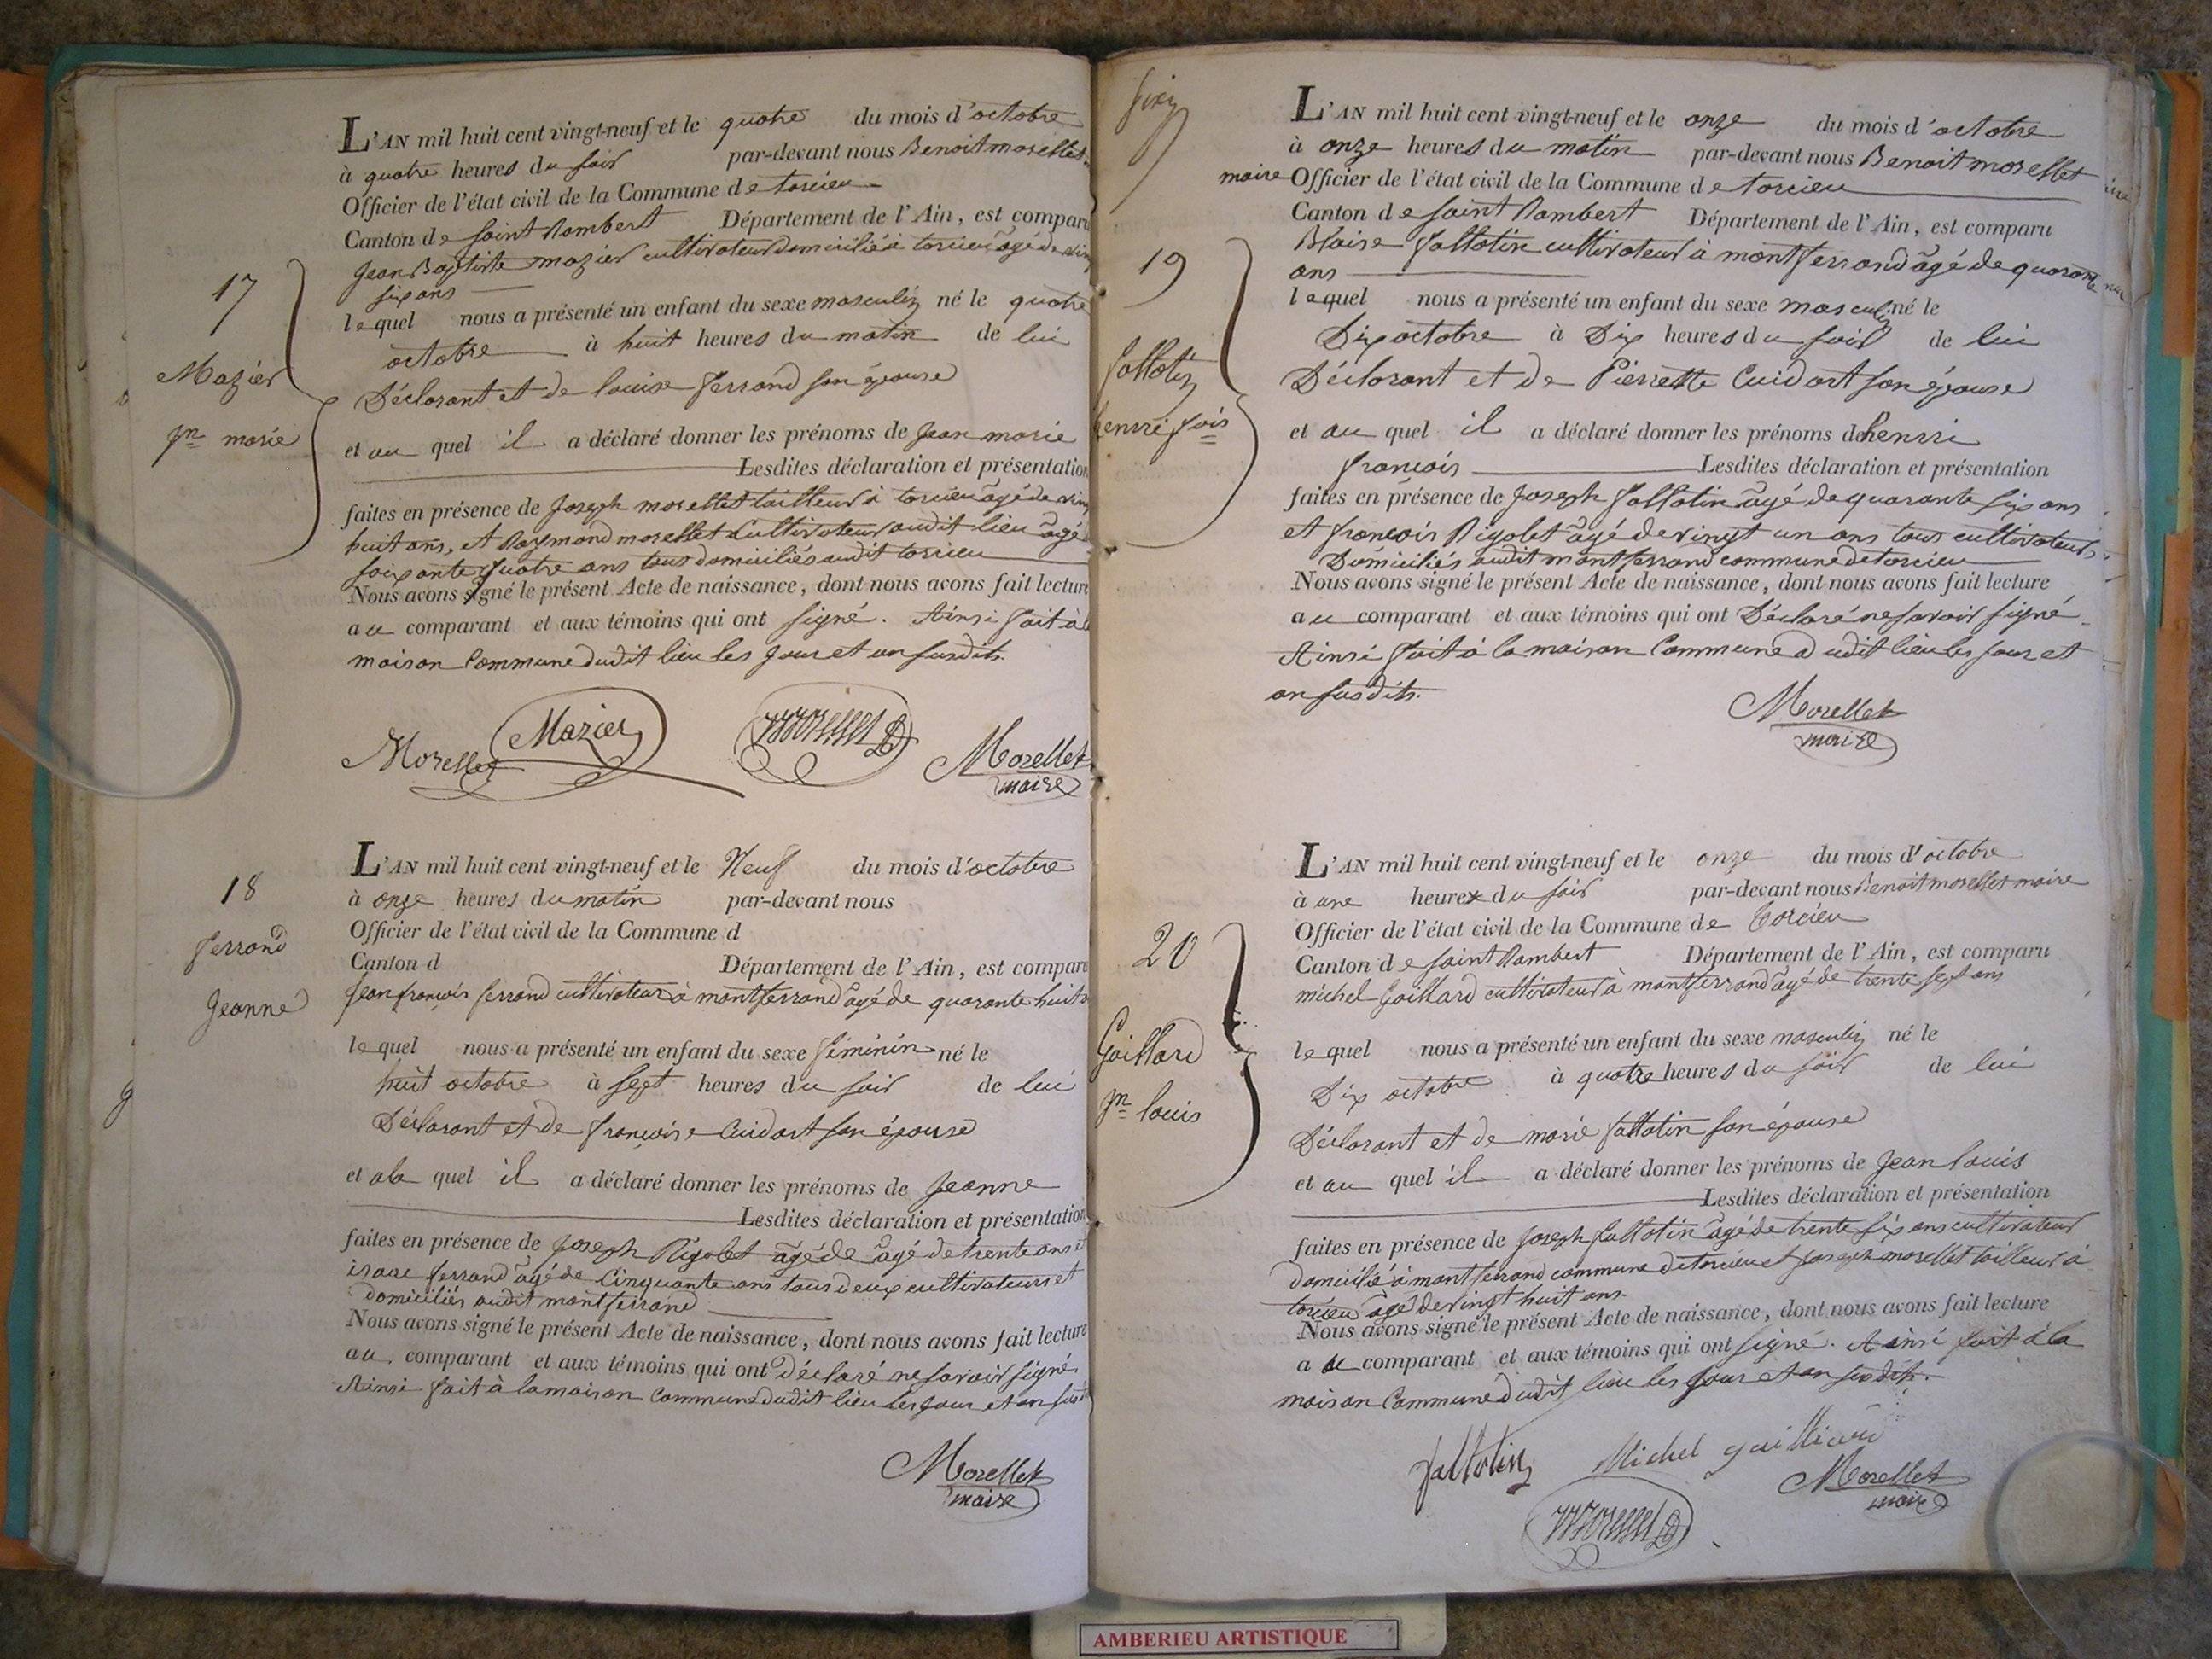 17
Mazier
jn marie
L'AN mil huit cent vingt-neuf et le quatre du mois d'octobre
à quatre heures du soir par-devant nous Benoit morellet
Officier de l'état civil de la Commune de torcieu
Canton de saint Rambert Département de l'Ain, est comparu
Jean Baptiste mazier cultivateur domicilié à torcieu âgé de
six ans
lequel nous a présenté un enfant du sexe masculin né le quatre
octobre à huit heures du matin de lui
Déclarant et de louise ferrand son épouse
et au quel il a déclaré donner les prénoms de jean marie
Lesdites déclaration et présentation
faites en présence de joseph morellet tailleur à torcieu âgé de
huit ans, et Raymond morellet Cultivateur audit lieu âgé
soixante quatre ans tous domiciliés audit torcieu
Nous avons signé le présent Acte de naissance, dont nous avons fait lecture
au comparant et aux témoins qui ont signé. Ainsi fait à
maison Commune dudit lieu les jour et an susdits.
Morellet Mazier Morellet
maire
18
ferrand
Jeanne
L'AN mil huit cent vingt-neuf et le Neuf du mois d'octobre
à onze heures du matin par-devant nous
Officier de l'état civil de la Commune d
Canton d Département de l'Ain, est comparu
jean françois ferrand cultivateur à montferrand âgé de quarante huit
lequel nous a présenté un enfant du sexe féminin né le
huit octobre à sept heures du soir de lui
Déclarant et de françoise Cuidart son épouse
et a la quel il a déclaré donner les prénoms de jeanne
Lesdites déclaration et présentation
faites en présence de joseph Rigolet âgé de âgé de trente ans et
isaac ferrand âgé de Cinquante ans tous deux cultivateurs et
domiciliés audit montferrand
Nous avons signé le présent Acte de naissance, dont nous avons fait lecture
au comparant et aux témoins qui ont Déclaré ne savoir signé
Ainsi fait à la maison Commune dudit lieu les jour et an
Morellet
maire
19
fallotin
henrri fois
L'AN mil huit cent vingt-neuf et le onze du mois d'octobre
à onze heures du matin par-devant nous Benoit morellet
maire Officier de l'état civil de la Commune de torcieu
Canton de saint Rambert Département de l'Ain, est comparu
Blaise fallotin cultivateur à montferrand âgé de quarante
ans
lequel nous a présenté un enfant du sexe masculin né le
Dix octobre à Dix heures du soir de lui
Déclarant et de Pierrette Cuidart son épouse
et au quel il a déclaré donner les prénoms de henrri
françois Lesdites déclaration et présentation
faites en présence de joseph fallotin âgé de quarante six ans
et françois Rigolet âgé de vingt un ans tous cultivateurs
Domiciliés audit montferrand commune de torcieu
Nous avons signé le présent Acte de naissance, dont nous avons fait lecture
au comparant et aux témoins qui ont Déclaré ne savoir signé
Ainsi fait à la maison Commune dudit lieu les jour et
an susdits.
Morellet
maire
20
Gaillard
jn louis
L'AN mil huit cent vingt-neuf et le onze du mois d'octobre
à une heure du soir par-devant nous Benoit morellet maire
Officier de l'état civil de la Commune de torcieu
Canton de saint Rambert Département de l'Ain, est comparu
michel Gaillard cultivateur à montferrand âgé de trente sept ans
lequel nous a présenté un enfant du sexe masculin né le
Dix octobre à quatre heures du soir de lui
Déclarant et de marie fallotin son épouse
et au quel il a déclaré donner les prénoms de jean louis
Lesdites déclaration et présentation
faites en présence de joseph fallotin âgé de trente six ans cultivateur
domicilié à montferrand commune de torcieu et joseph morellet tailleur à
torcieu âgé de vingt huit ans.
Nous avons signé le présent Acte de naissance, dont nous avons fait lecture
au comparant et aux témoins qui ont signé. Ainsi fait à la
maison Commune dudit lieu les jour et an susdits.
fallotin Michel gailliard
Morellet
maire
AMBERIEU ARTISTIQUE